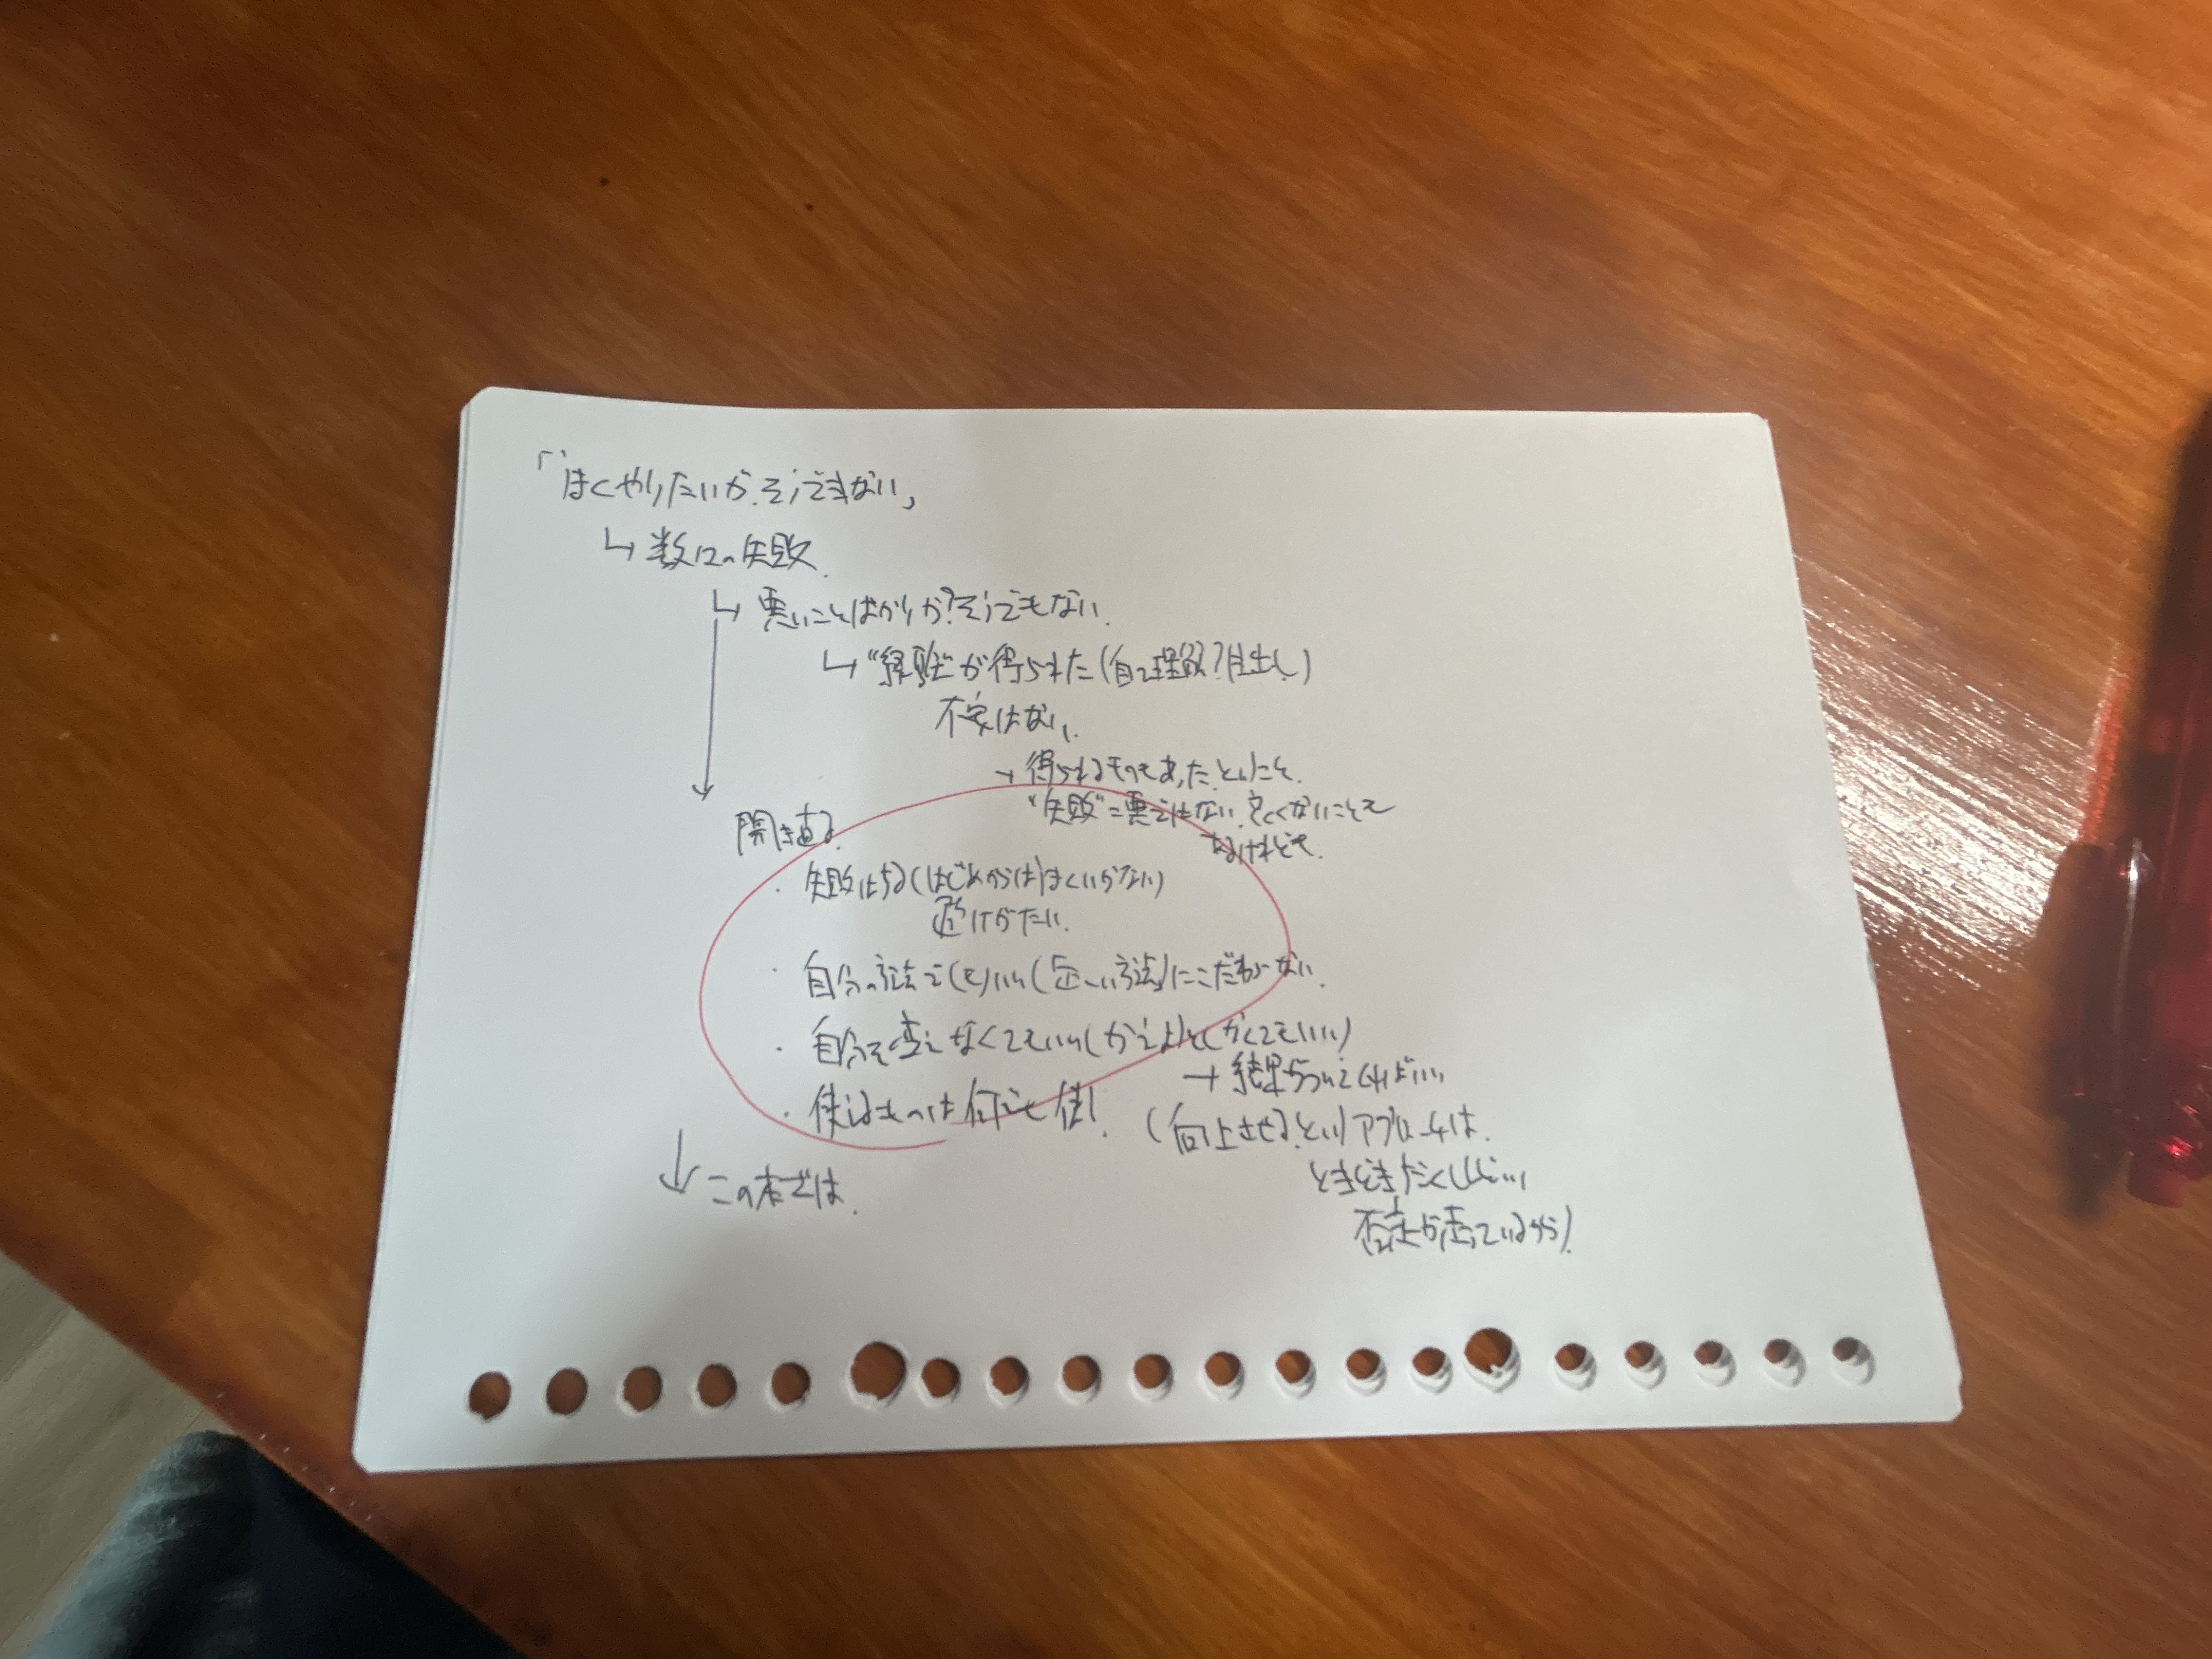 「うまくやりたいが、そうできない」
↳ 数々の失敗.
↳ 悪いことばかりか?そうでもない.
↳ "経験"が得られた(自己理解?
不安はない.
→ 得られるものもあったということ.
"失敗"=悪ではない.良くないことで
あるけれども.
開き直る.
・失敗はする(はじめからはうまくいかない)
避けがたい.
・自分の方法で(も)いい(正しい方法)にこだわらない.
・自分を変えなくてもいい(かえようとしなくてもいい)
→ 結果がついてくればいい
・使えるものは何でも使う.
(向上させる.というアプローチは.
ときどき
否定が走っているから).
↓ この本では.